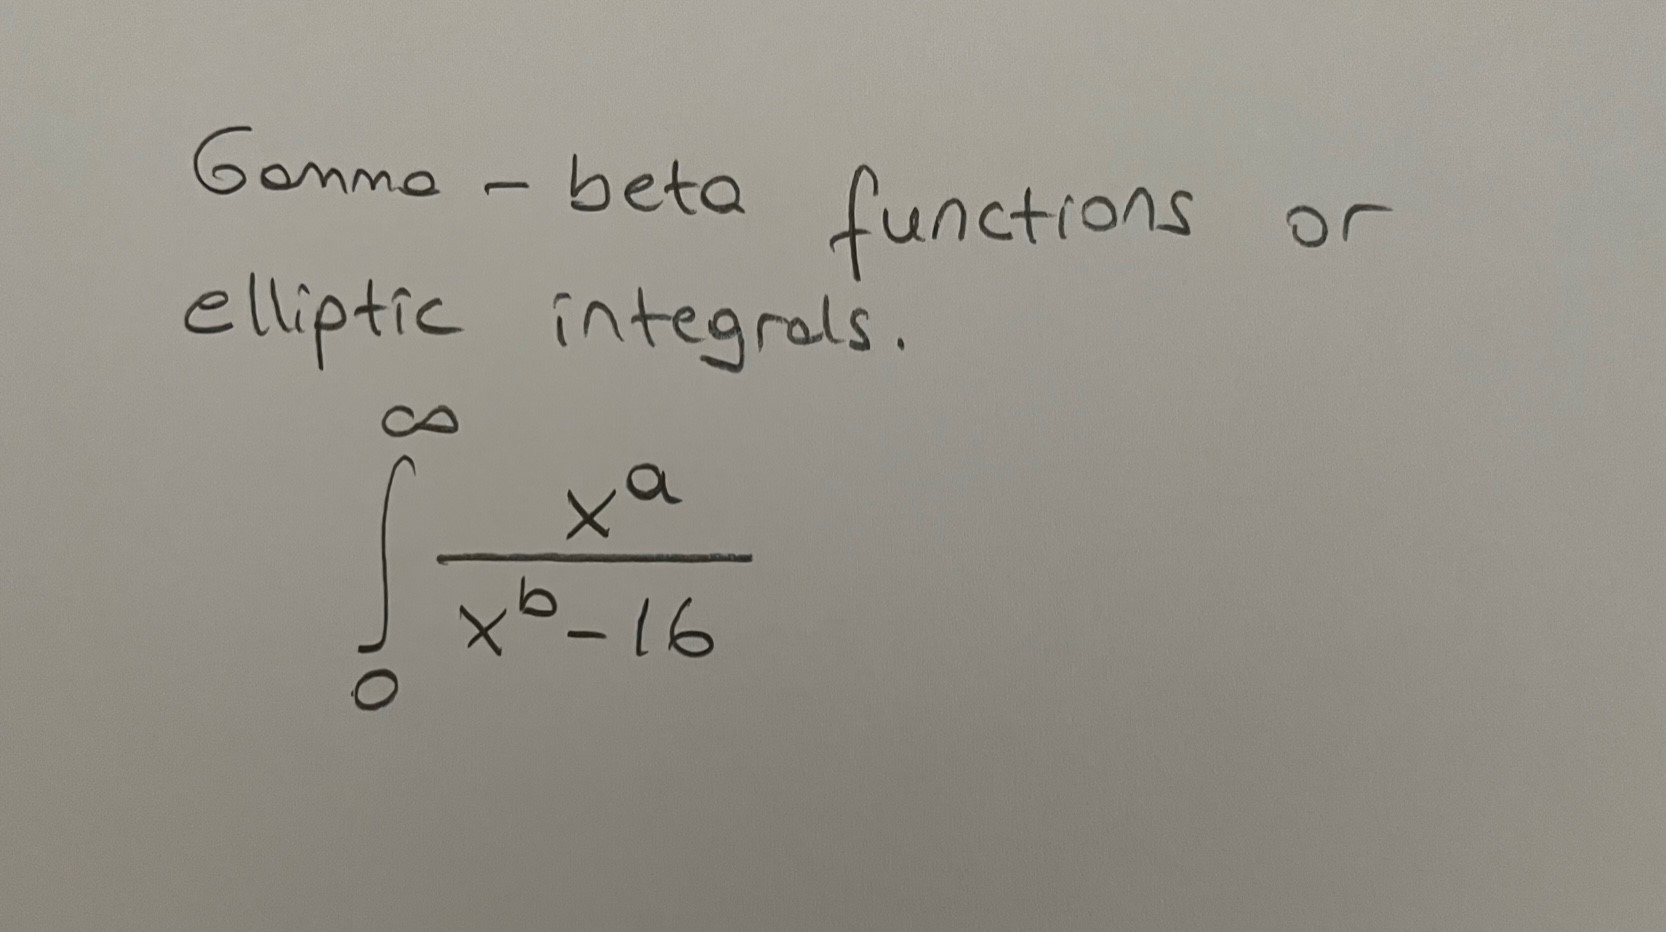 Gamma - beta functions or
elliptic integrals.
∞
∫ x^a / (x^b - 16)
0